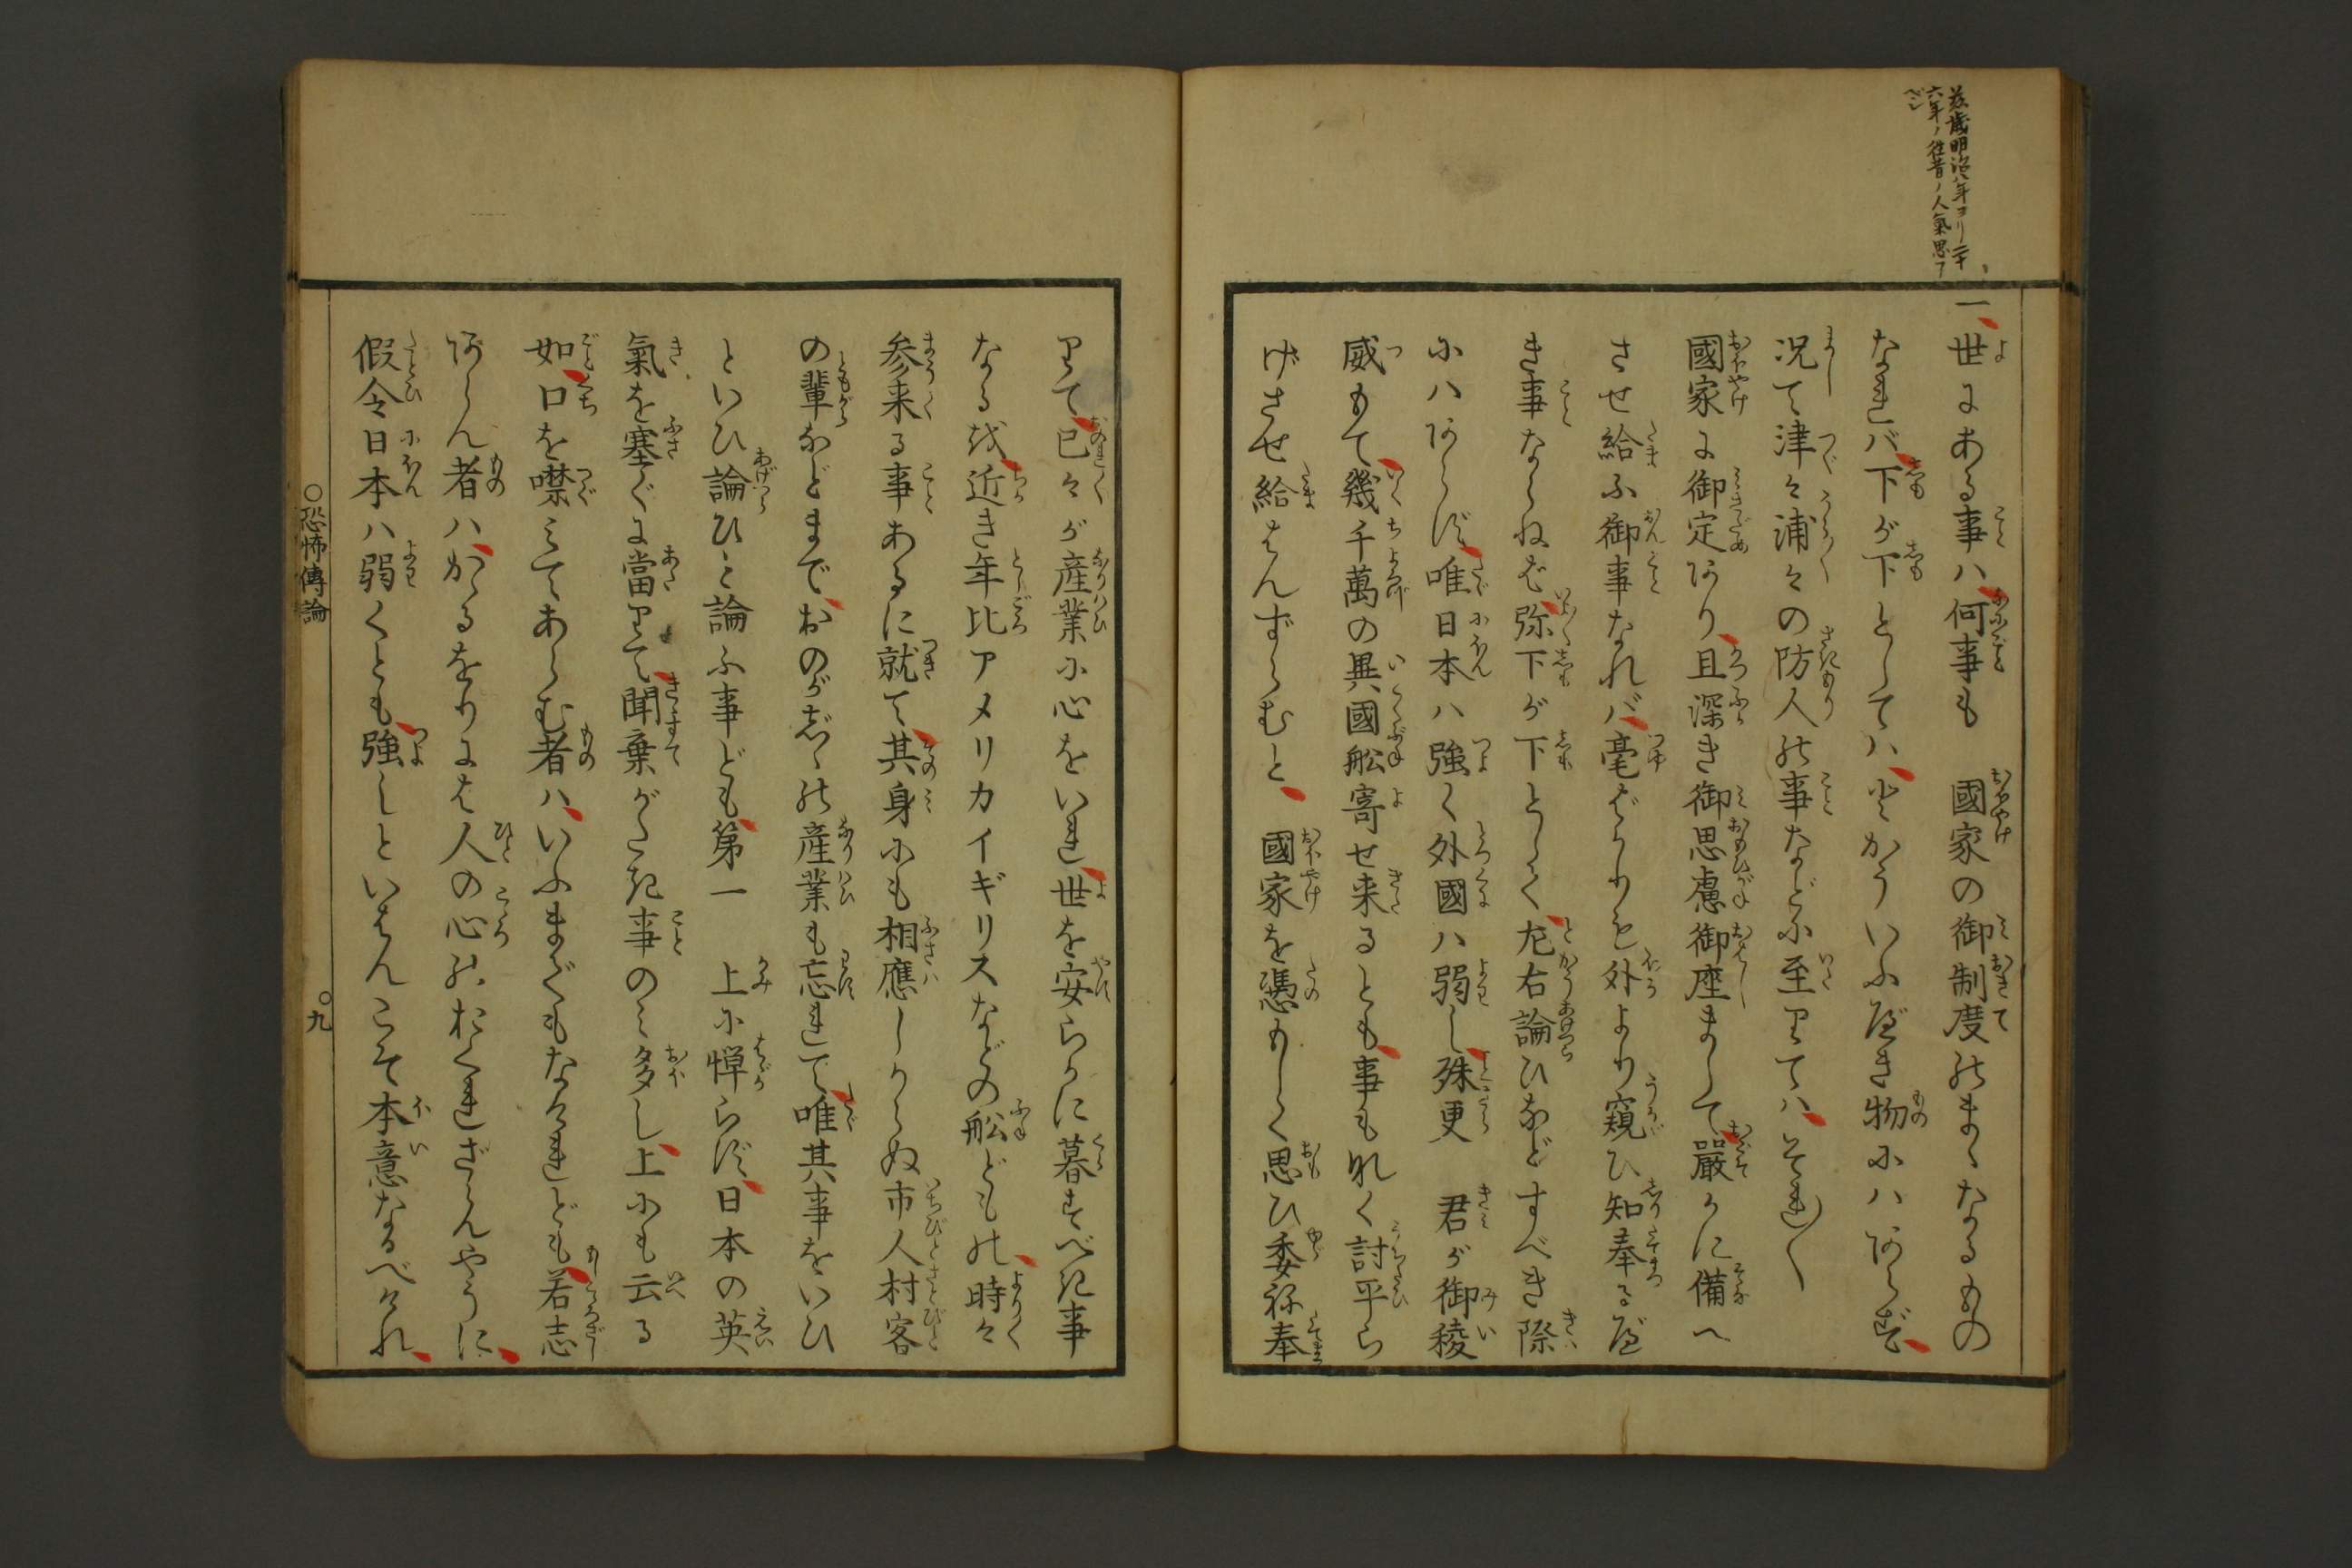 茲歳明治八年ヨリ二十
六年ノ往昔ノ人氣思フ
ベシ
一世にある事ハ何事も　國家の御制度のまゝなるもの
なれバ下が下としてハ とかういふべき物にハあらず
况て津々浦々の防人の事などに至りてハそれ〳〵
國家に御定あり且深き御思慮御座まして嚴かに備へ
させ給ふ御事なれバ毫ばかりも外より窺ひ知奉るべ
き事ならねば弥下が下として左右論ひなどすべき際
にハあらず唯日本ハ強く外國ハ弱し殊更　君が御稜
威もて幾千萬の異國舩寄せ来るとも事も無く討平ら
げさせ給はんずらむと　國家を憑もしく思ひ委ね奉
りて己々が産業に心をいれ世を安らかに暮すべき事
なるを近き年比アメリカイギリスなどの舩どもの時々
参来る事あるに就て其身にも相應しからぬ市人村客
の輩などまでおのがじゝの産業も忘れて唯其事をいひ
といひ論ひと論ふ事ども第一　上に憚らず日本の英
氣を塞ぐに當りて聞棄がたき事のミ多し上にも云る
如口を噤ミてあらむ者ハいふまでもなけれども若志
あらん者ハかゝるをりには人の心のおくれざらんやうに
假令日本ハ弱くとも強しといはんこそ本意なるべけれ
○恐怖傳論
○九